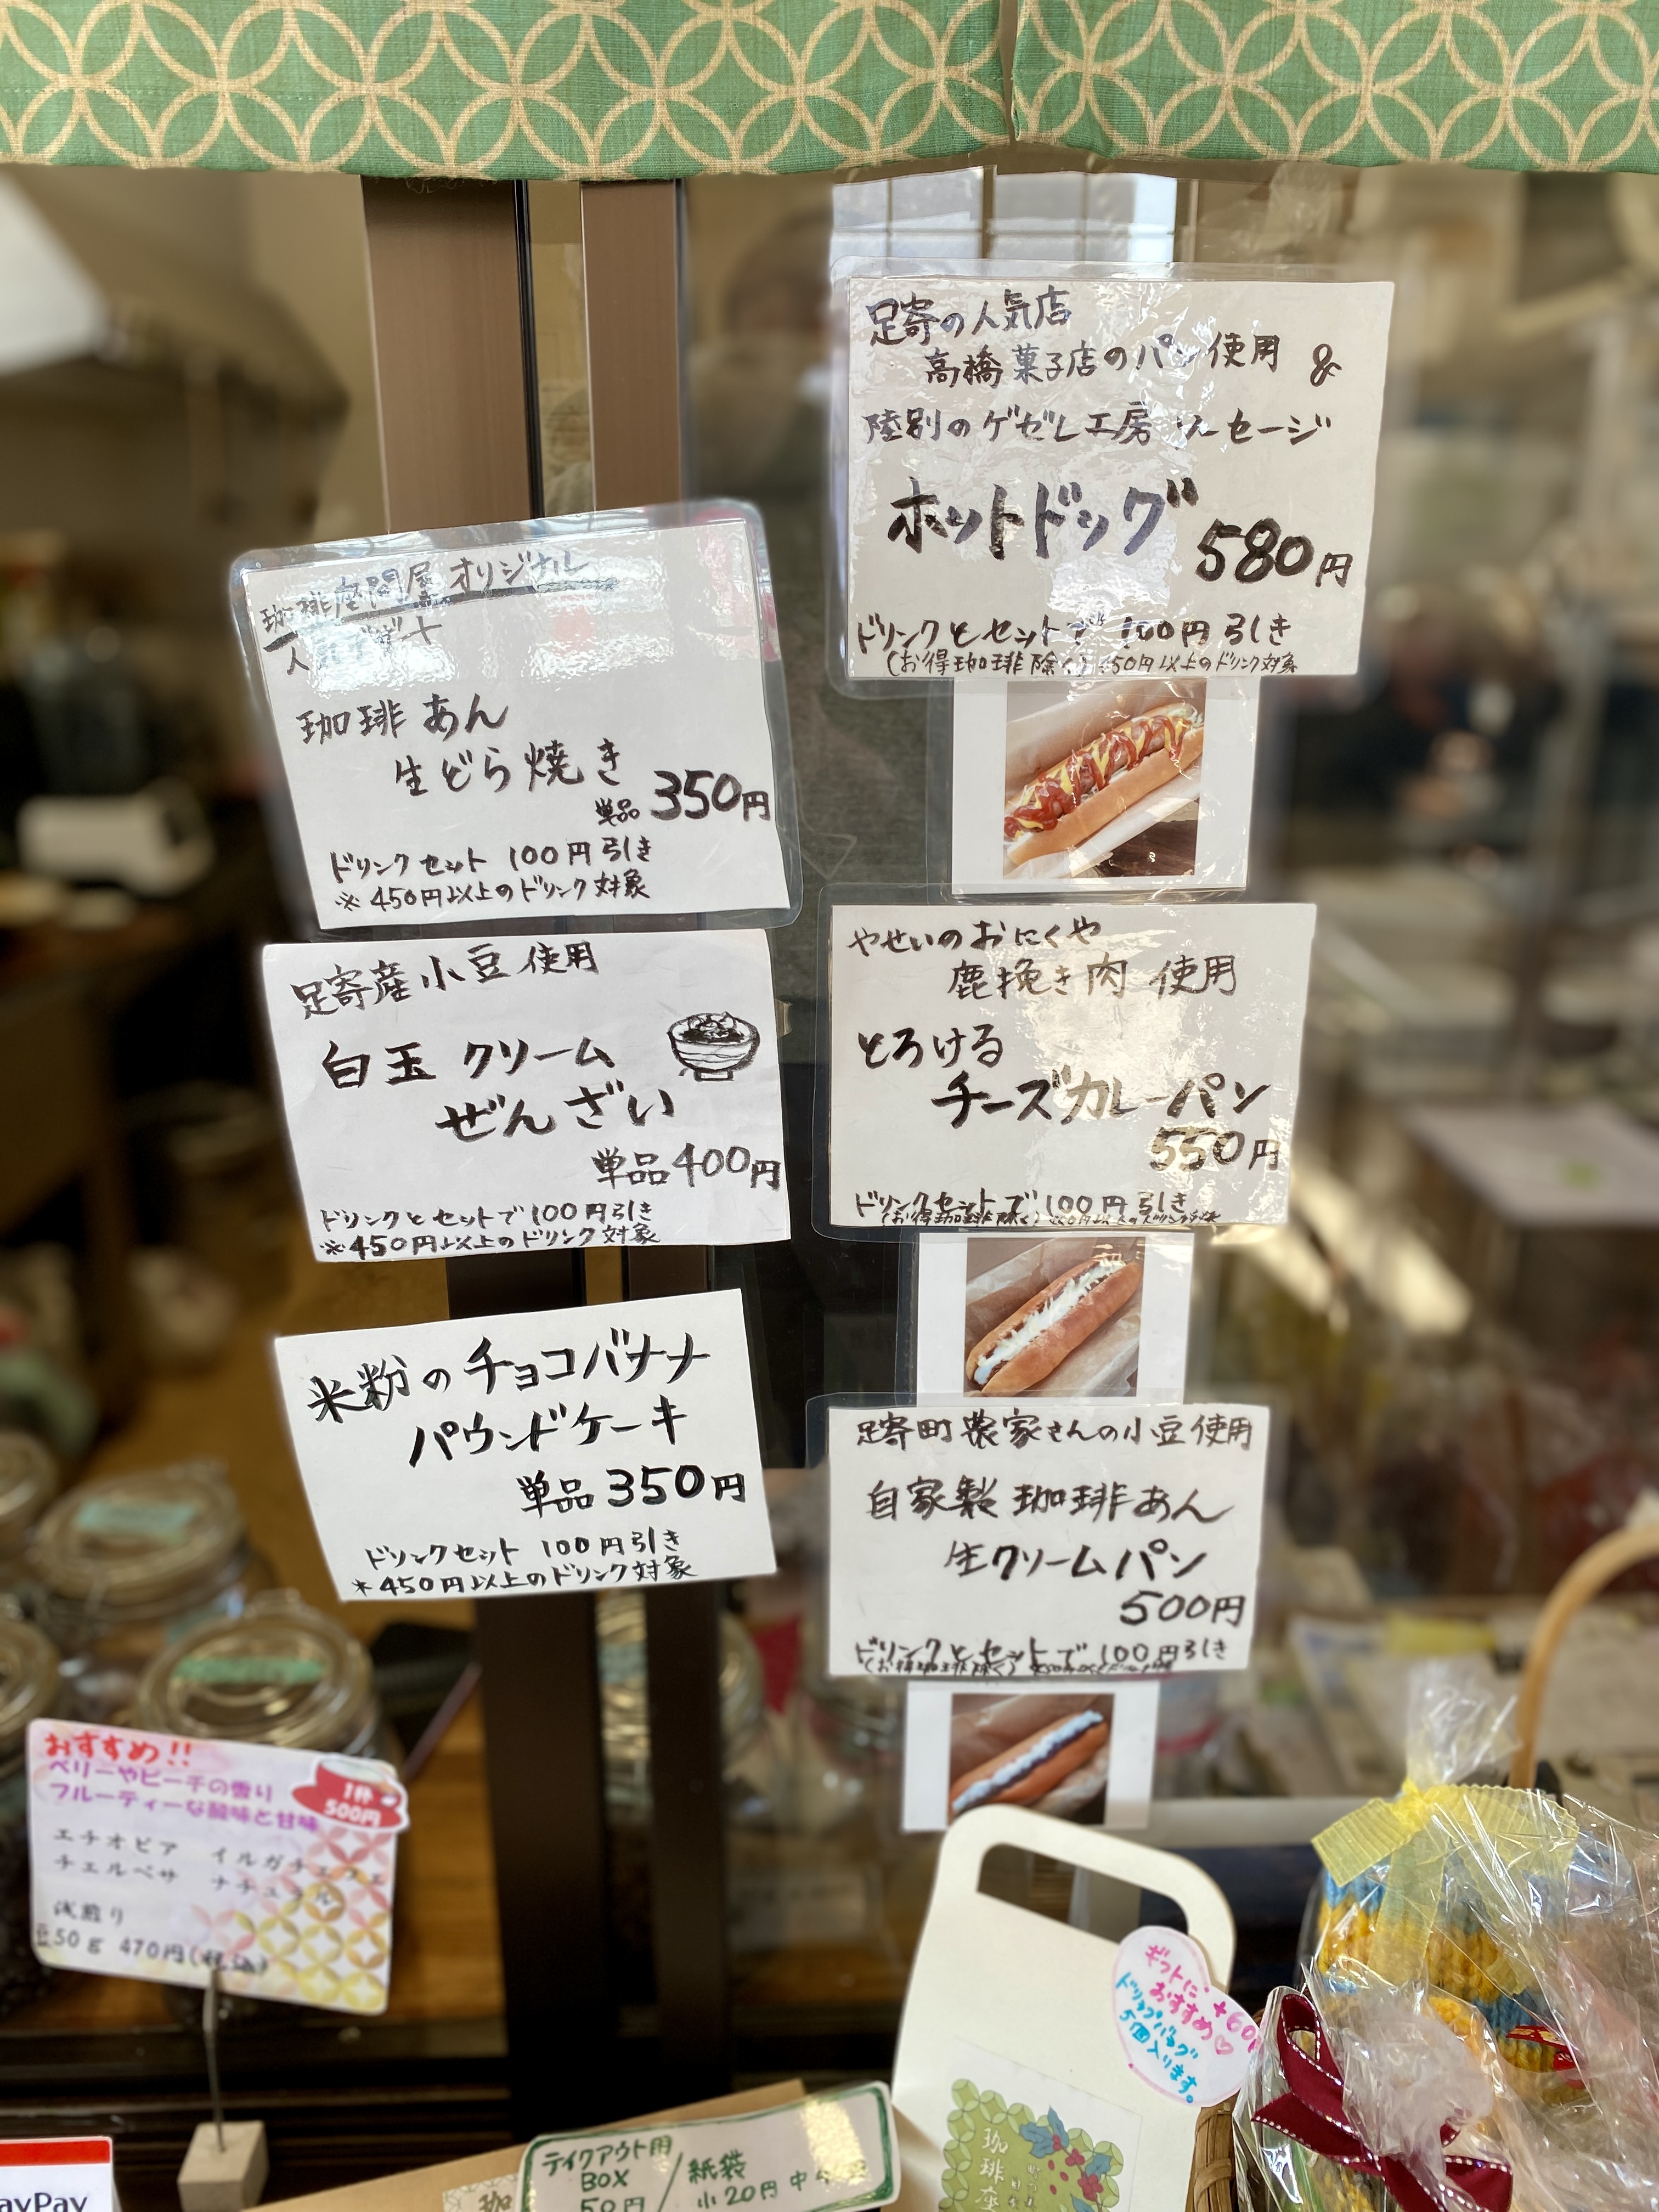 足寄の人気店
高橋菓子店のパン使用 &
陸別のゲゼレ工房 ソーセージ
ホットドッグ
580円
ドリンクとセットで 100円引き
(お得珈琲除く) 450円以上のドリンク対象
珈琲座間屋 オリジナル
人気デザート
珈琲あん
生どら焼き
単品 350円
ドリンクセット 100円引き
※450円以上のドリンク対象
足寄産小豆使用
白玉 クリーム
ぜんざい
単品400円
ドリンクとセットで100円引き
※450円以上のドリンク対象
米粉のチョコバナナ
パウンドケーキ
単品 350円
ドリンクセット 100円引き
*450円以上のドリンク対象
やせいのおにくや
鹿挽き肉 使用
とろける
チーズカレーパン
550円
ドリンクセットで 100円引き
(お得珈琲除く)
足寄町農家さんの小豆使用
自家製 珈琲あん
生クリームパン
500円
ドリンクとセットで 100円引き
(お得珈琲除く)
おすすめ!!
ベリーやピーチの香り
フルーティーな酸味と甘味
1杯
500円
エチオピア イルガチェフェ
チェルベサ ナチュラル
浅煎り
豆50g 470円(税込)
ギフトに
おすすめ♡
ドリップバッグ
5個入ります。
テイクアウト用
BOX
50円
紙袋
小20円 中
珈琲座
ayPay